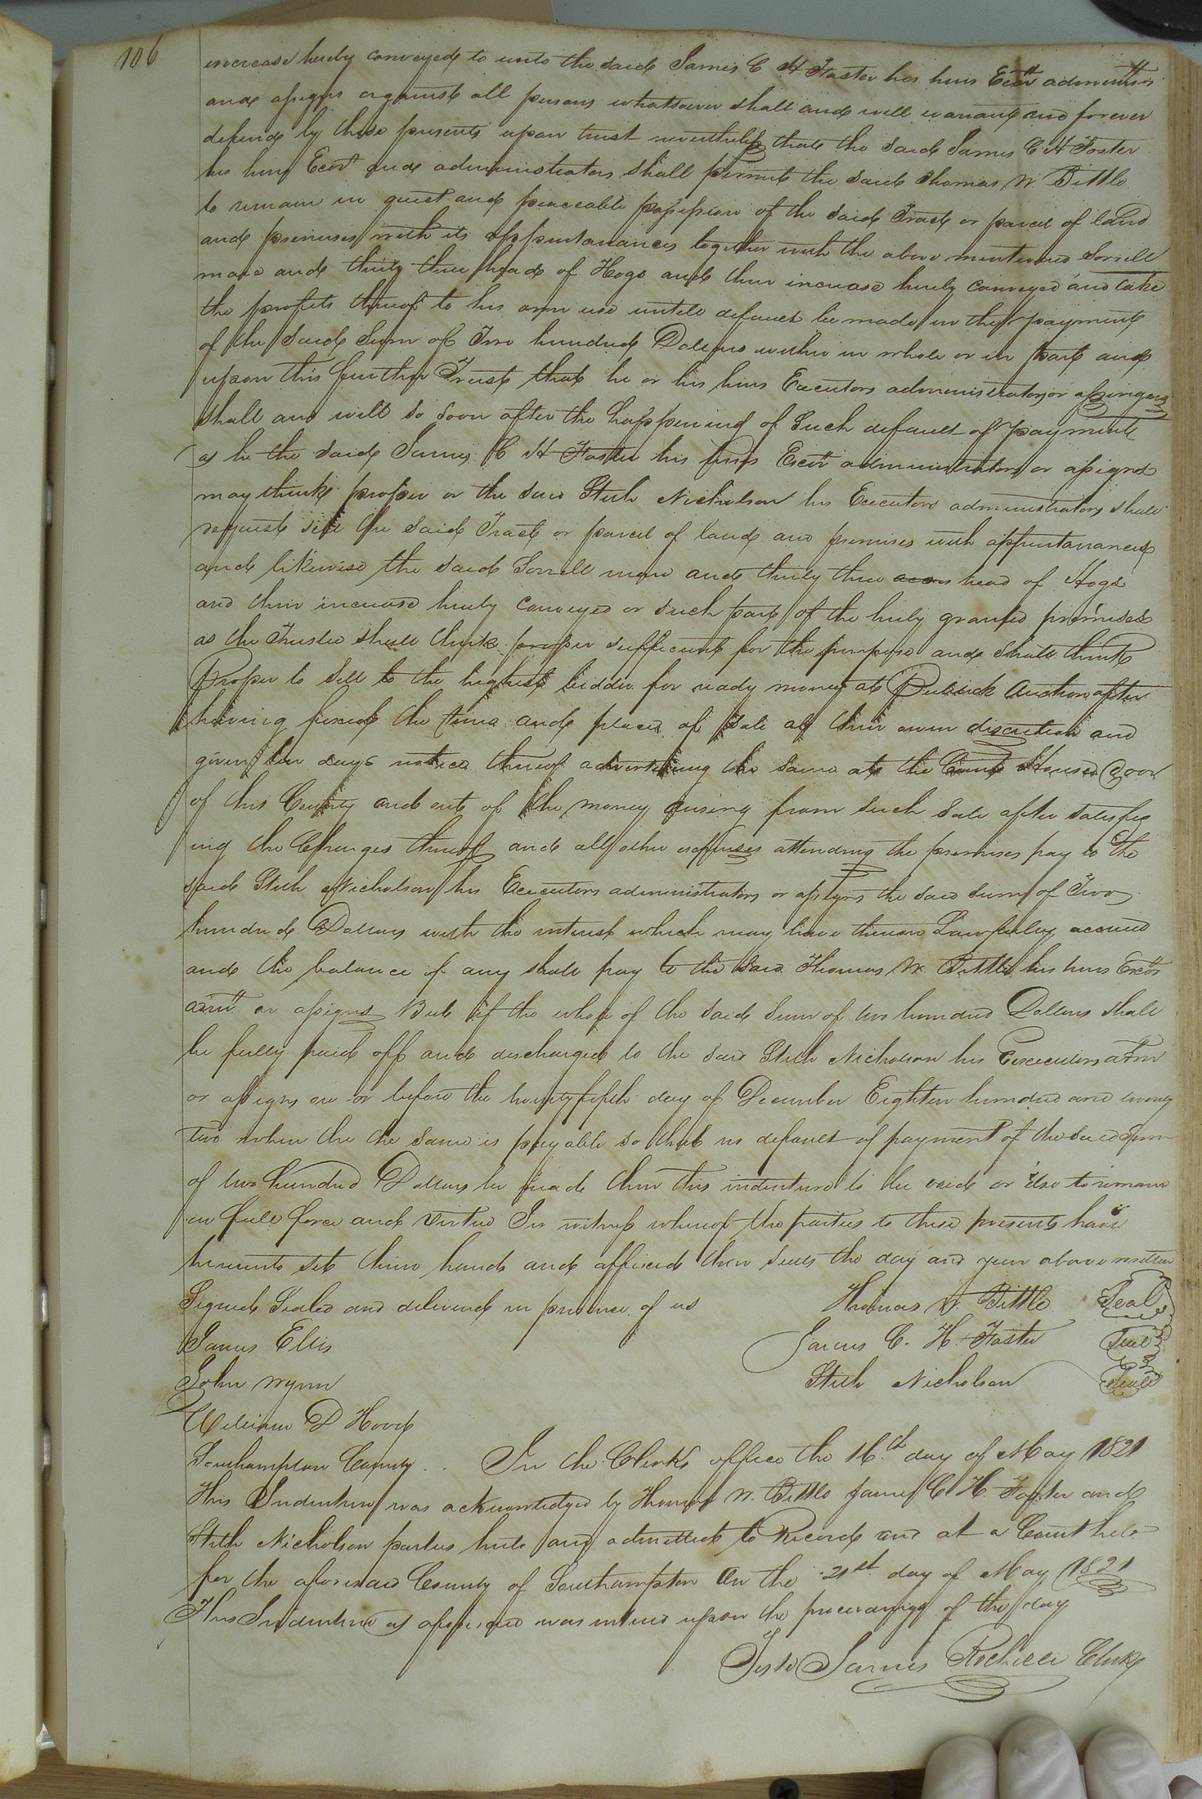 106
increase hereby conveyed to unto the said James C H Foster his heirs Exors adminrs
and assigns against all persons whatsoever shall and will warrant and forever
defend by these presents upon trust nevertheless that the said James C H Foster
his heirs Exors and administrators shall permit the said Thomas W Bittle
to remain in quiet and peaceable possession of the said Tract or parcel of land
and premises with its appurtanances together with the above mentioned Sorrell
mare and thirty three head of Hogs and their increase hereby conveyed and take
the profits thereof to his own use untill default be made in the payment
of the said Sum of Two hundred Dollars either in whole or in part and
upon this further Trust that he or his heirs Executors administrators or assingns
shall and will so soon after the happening of Such default of payment
as he the said James C H Foster his heirs Exors administrators or assigns
may think proper or the said Stith Nicholson his Executors administrators shall
request sell the said Tract or parcel of land and premises with appurtanances
and likewise the said Sorrell mare and thirty three head of Hogs
and their increase hereby conveyed or such part of the hereby granted premises
as the Trustee shall think proper sufficient for the purpose and shall think
proper to Sell to the highest bidder for ready money at Publick Auction after
having fixed the time and place of Sale at their own discretion and
given ten days notice thereof advertising the same at the Court House door
of this County and out of the money arising from such Sale after satisfy
ing the Charges thereof and all other expenses attending the premises pay to the
said Stith Nicholson his Executors administrators or assigns the said sum of Two
hundred Dollars with the interest which may have thereon Lawfully accrued
and the balance if any shall pay to the said Thomas W Bittle his heirs Exors
admrs or assigns But if the whole of the said Sum of two hundred Dollars shall
be fully paid off and discharged to the said Stith Nicholson his Executors admr
or assigns on or before the twentyfifth day of December Eighteen hundred and twenty
two when the the same is payable so that no default of payment of the said Sum
of two hundred Dollars be made then this indenture to be void or else to remain
in full force and virtue In witness whereof the parties to these presents have
hereunto set their hands and affixed their seals the day and year above written
Signed Sealed and delivered in presence of us Thomas W Bittle Seal
James Ellis James C. H Foster Seal
John Wynn Stith Nicholson Seal
William D Hood
Southampton County. In the Clerks office the 16th day of May 1821
This Indenture was acknowledged by Thomas W. Bittle James C H Foster and
Stith Nicholson parties hereto and admitted to Record and at a Court held
for the aforesaid County of Southampton On the 21st day of May 1821
This Indenture as aforesaid was entered upon the proceedings of the day
Teste James Rochelle Clerk